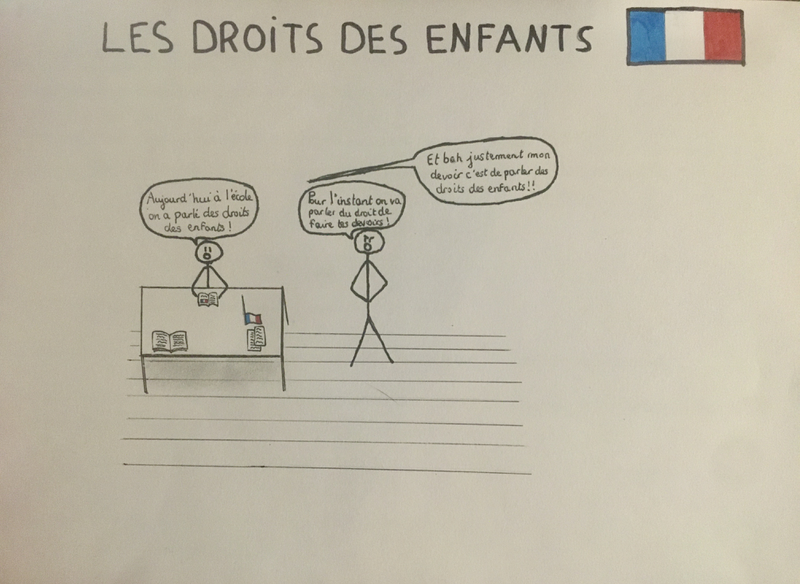 LES DROITS DES ENFANTS
Aujourd'hui à l'école
on a parlé des droits
des enfants !
Pour l'instant on va
parler du droit de
faire tes devoirs !
Et bah justement mon
devoir c'est de parler des
droits des enfants !!